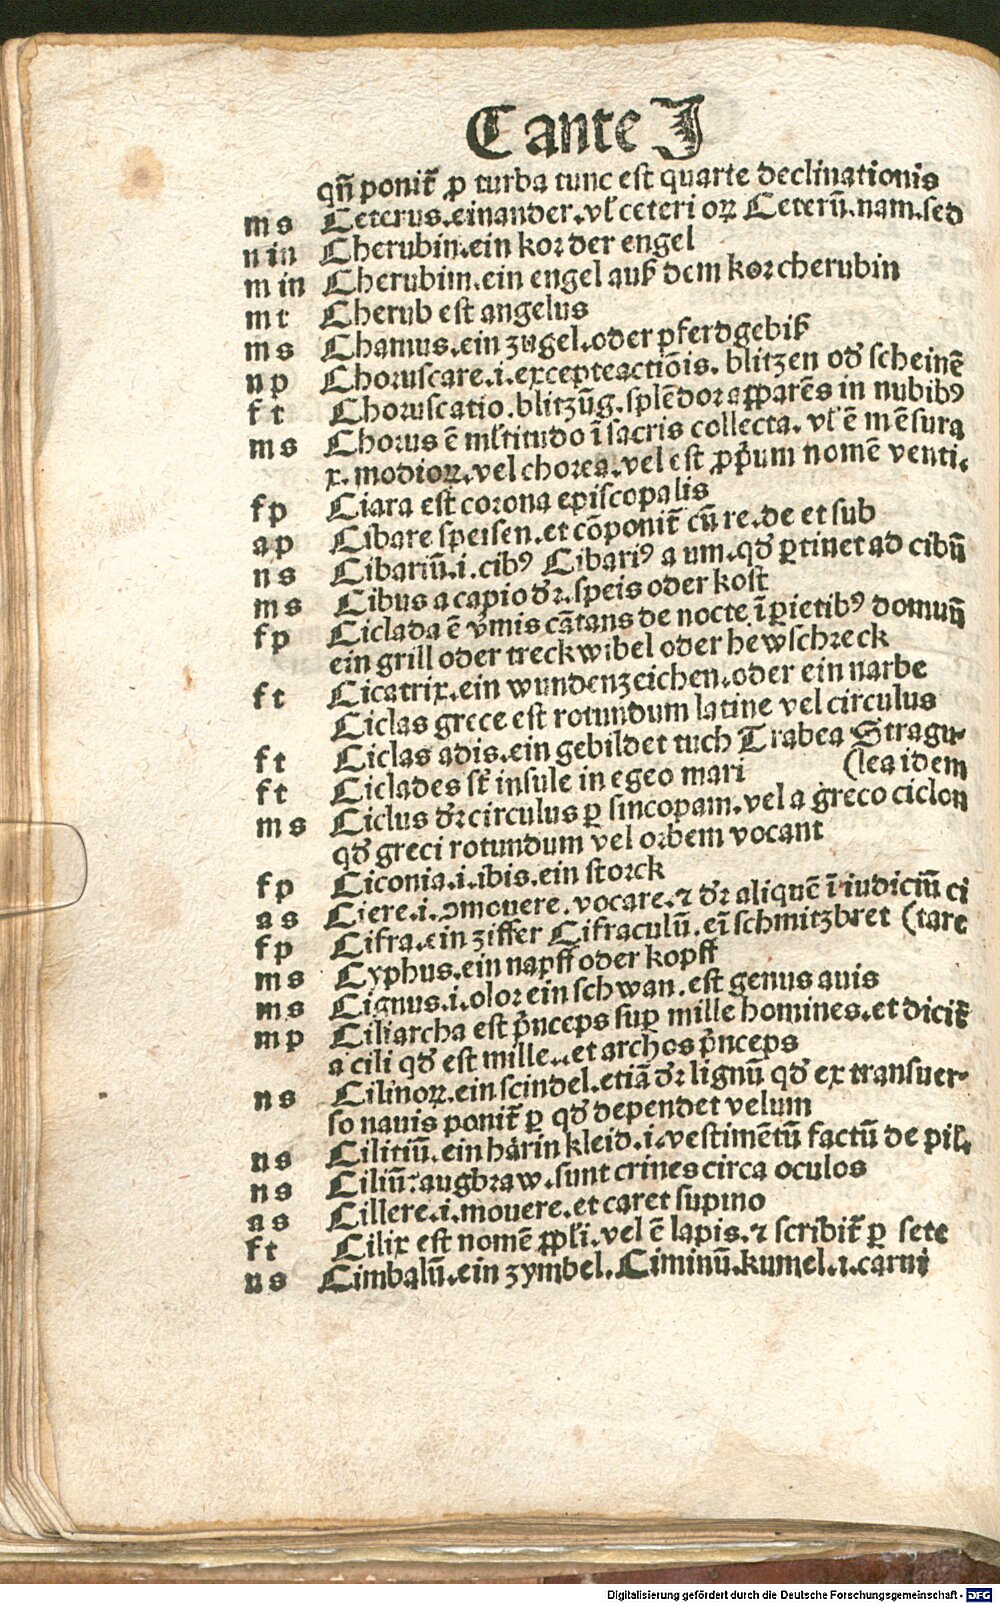 C ante J
qñ ponit̃ ꝓ turba tunc est quarte declinationis
m s Ceterus.einander.vl̃ ceteri oꝝ Ceterũ.nam.sed
n in Cherubin.ein kor der engel
m in Cherubim.ein engel auß dem kor cherubin
m t Cherub est angelus
m s Chamus.ein zugel.oder pferdgebiß
n p Choruscare.i.excepte actiõis. blitzen od̃ scheinẽ
f t Choruscatio.blitzũg.splẽdor apparẽs in nubibꝰ
m s Chorus ẽ ml̃titudo ĩ sacris collecta. vl̃ ẽ mẽsura
x. modioꝝ.vel chorea.vel est ꝓpr̃ium nomẽ venti.
f p Ciara est corona episcopalis
a p Cibare speisen.et cõponit̃ cũ re.de et sub
n s Cibariũ.i.cibꝰ Cibariꝰ a um.qd̃ ꝑtinet ad cibũ
m s Cibus a capio dr̃.speis oder kost
f p Ciclada ẽ v̉mis cãtans de nocte ĩ ꝑietibꝰ domuũ
ein grill oder treckwibel oder hewschreck
f t Cicatrix.ein wundenzeichen.oder ein narbe
Ciclas grece est rotundum latine vel circulus
f t Ciclas adis.ein gebildet tuch Trabea Stragu-
f t Ciclades st̃ insule in egeo mari (lea idem
m s Ciclus dr̃ circulus ꝑ sincopam.vel a greco ciclon
qd̃ greci rotundum vel orbem vocant
f p Ciconia.i.ibis.ein storck
a s Ciere.i.ꝯmouere.vocare.⁊ dr̃ aliquẽ ĩ iudiciũ ci
f p Cifra.ein ziffer Cifraculũ.eĩ schmitzbret (tare
m s Cyphus.ein napff oder kopff
m s Cignus.i.olor ein schwan.est genus auis
m p Ciliarcha est p̃nceps suꝑ mille homines.et dicit̃
a cili qd̃ est mille..et archos p̃nceps
n s Cilinoꝝ.ein scindel.etiã dr̃ lignũ qd̃ ex transuer-
so nauis ponit̃ ꝑ qd̃ dependet velum
n s Cilitiũ.ein härin kleid.i.vestimẽtũ factũ de pil.
n s Ciliũ:augbraw.sunt crines circa oculos
a s Cillere.i.mouere.et caret supino
f t Cilix est nomẽ ꝓpl̃i.vel ẽ lapis.⁊ scribit̃ ꝑ sete
n s Cimbalũ.ein zymbel.Ciminũ.kumel.i.carui
Digitalisierung gefördert durch die Deutsche Forschungsgemeinschaft - DFG